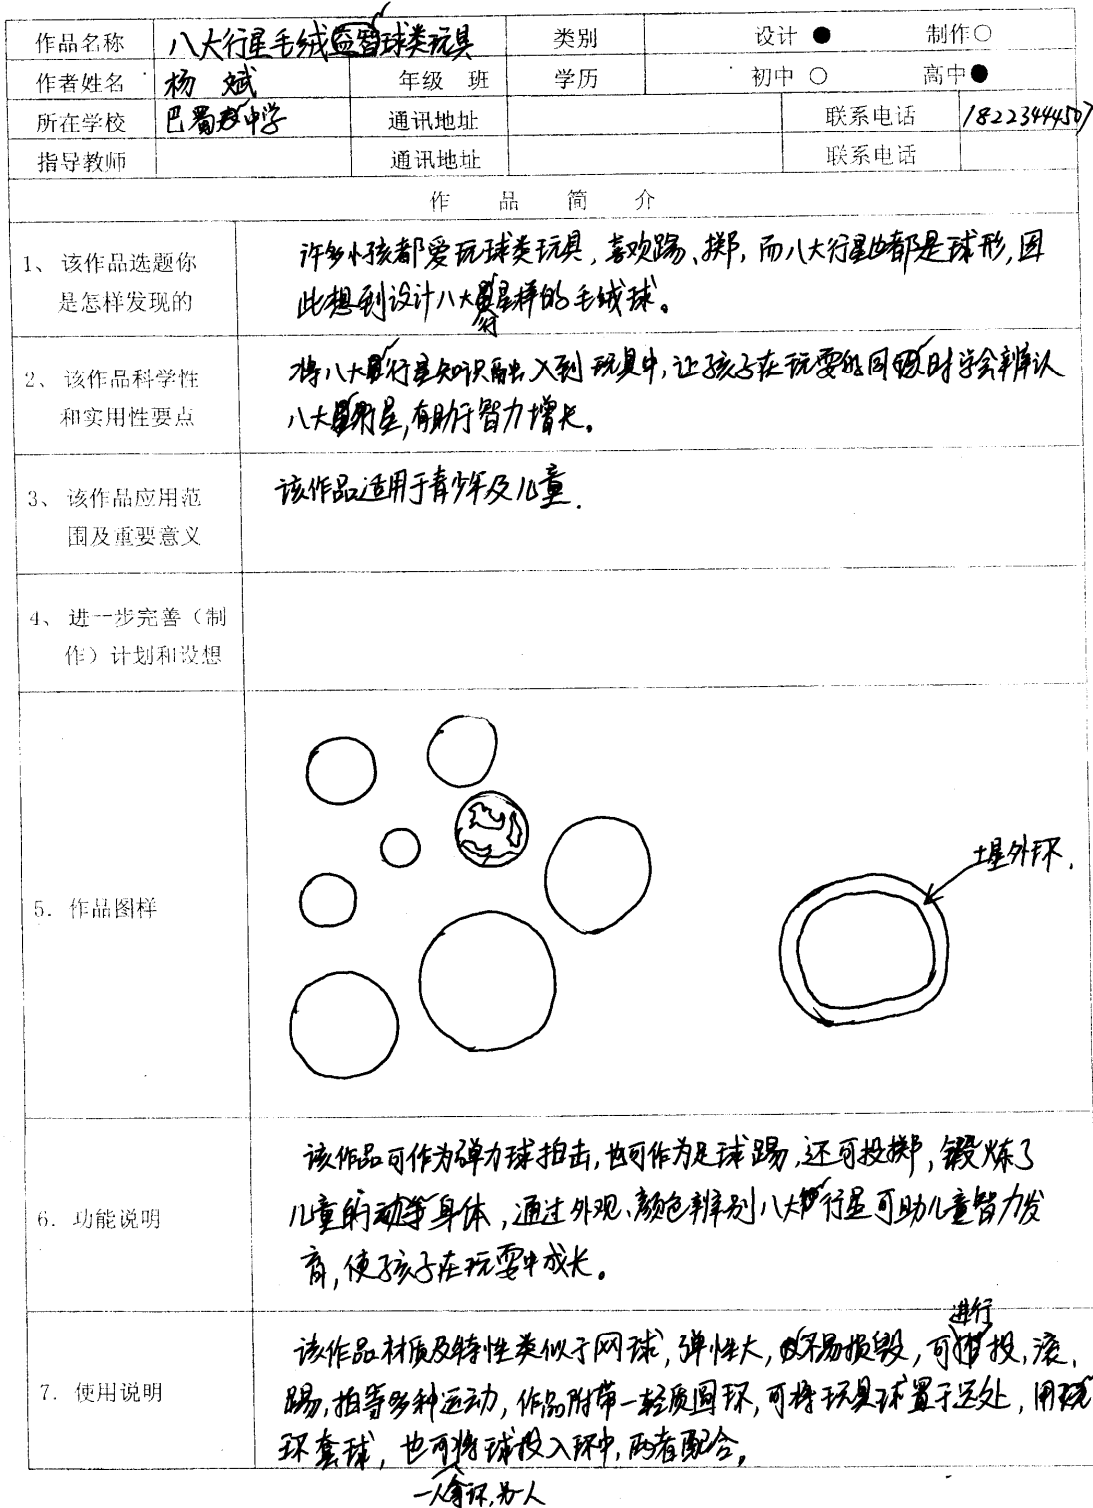 作品名称 八大行星毛绒益智球类玩具 类别 设计 ● 制作○
作者姓名 杨斌 年级 班 学历 初中 ○ 高中●
所在学校 巴蜀中学 通讯地址 联系电话 18223444507
指导教师 通讯地址 联系电话
作 品 简 介
1、 该作品选题你
是怎样发现的
许多小孩都爱玩球类玩具，喜欢踢、掷，而八大行星也都是球形，因
此想到设计八大行星样的毛绒球。
2、 该作品科学性
和实用性要点
将八大行星知识融入到玩具中，让孩子在玩耍的同时学会辨认
八大行星，有助于智力增长。
3、 该作品应用范
围及重要意义
该作品适用于青少年及儿童．
4、 进一步完善（制
作）计划和设想
5. 作品图样
土星外环．
6. 功能说明
该作品可作为弹力球拍击，也可作为足球踢，还可投掷，锻炼了
儿童的身体，通过外观、颜色辨别八大行星可助儿童智力发
育，使孩子在玩耍中成长。
7. 使用说明
该作品材质及特性类似于网球，弹性大，不易损毁，可进行投，滚，
踢，拍等多种运动，作品附带一轻质圆环，可将玩具球置于远处，用
环套球，也可一人拿环，另一人将球投入环中，两者配合。